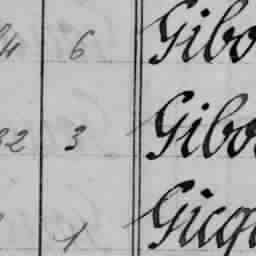 4 6 Gibo
32 3 Gibo
1 Gicq